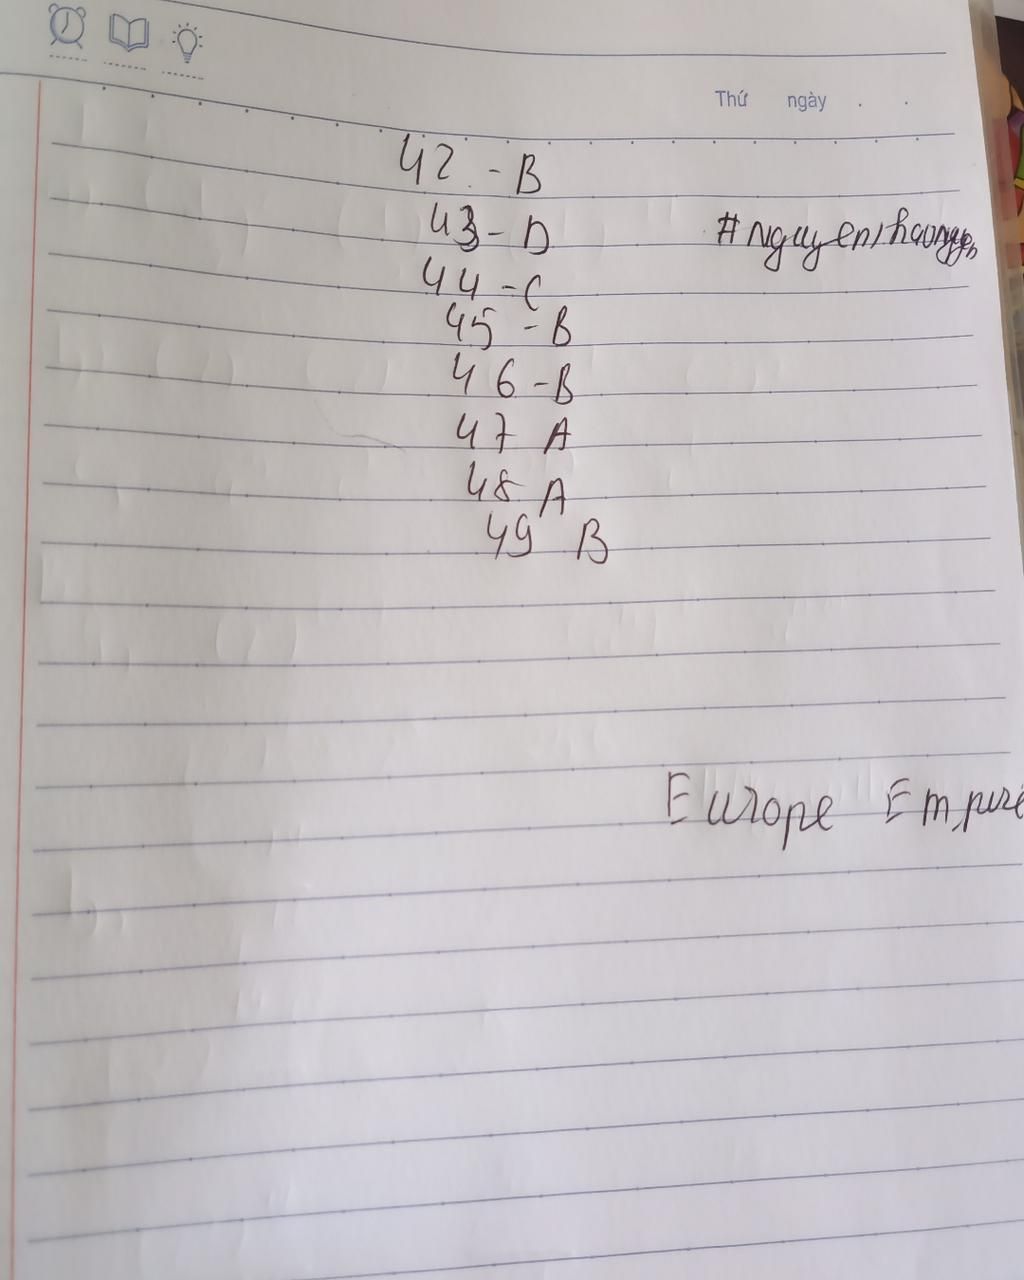 Thứ ngày . .
42 - B
43 - D
#nguyenthaonguyen
44 - C
45 - B
46 - B
47 A
48 A
49 B
Europe Empire